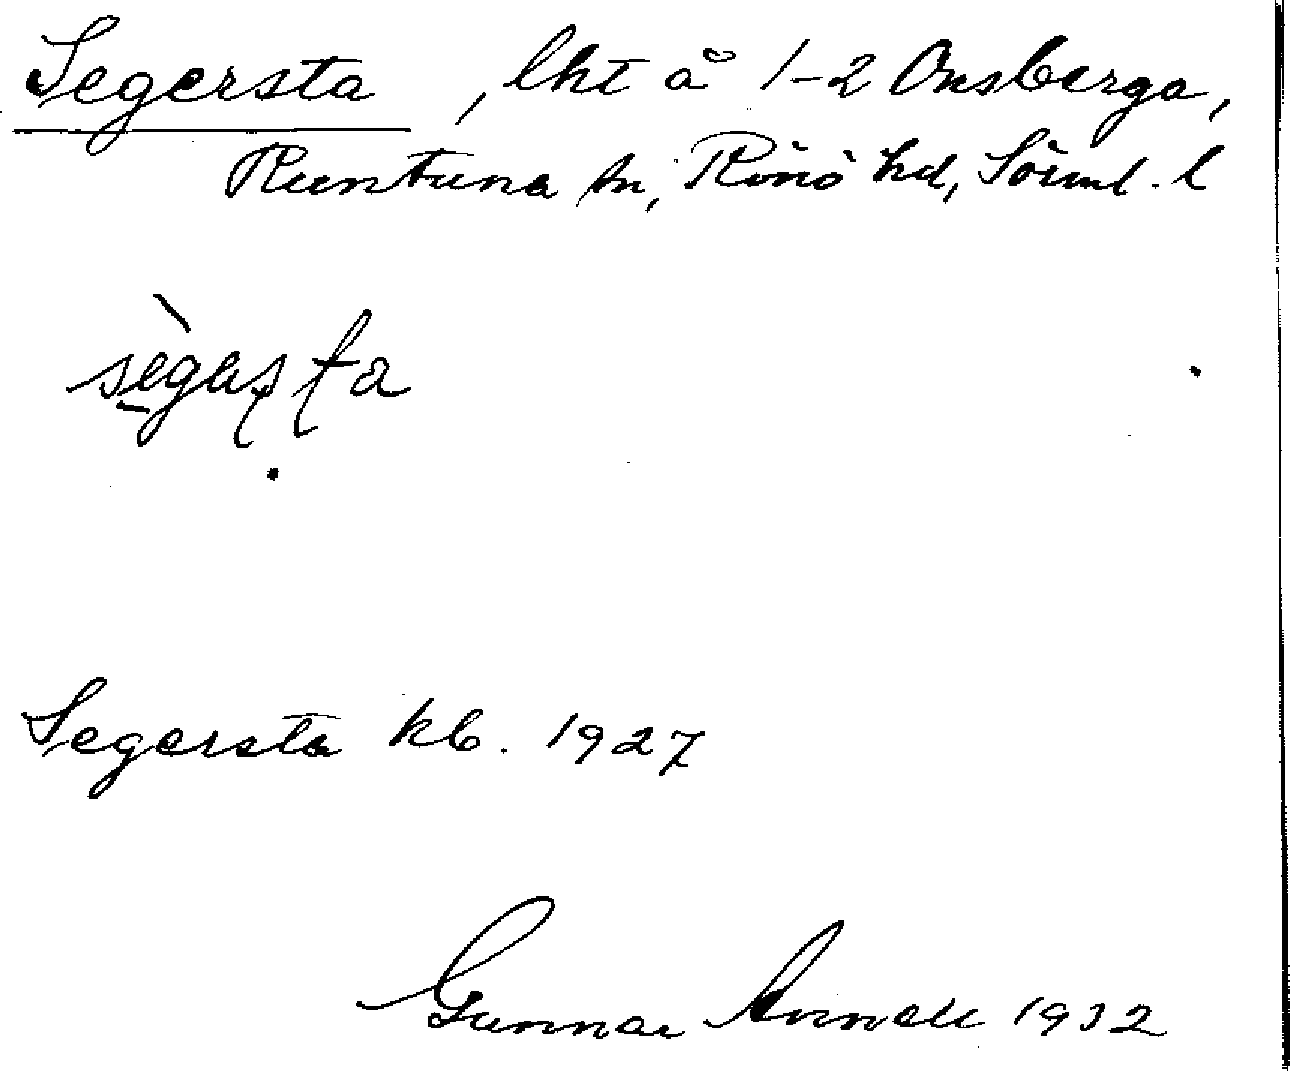 Segersta, lht å 1-2 Onsberga,
Runtuna sn, Rönö hd, Söiml. l
Segersta kb. 1927
Gunnar 1932